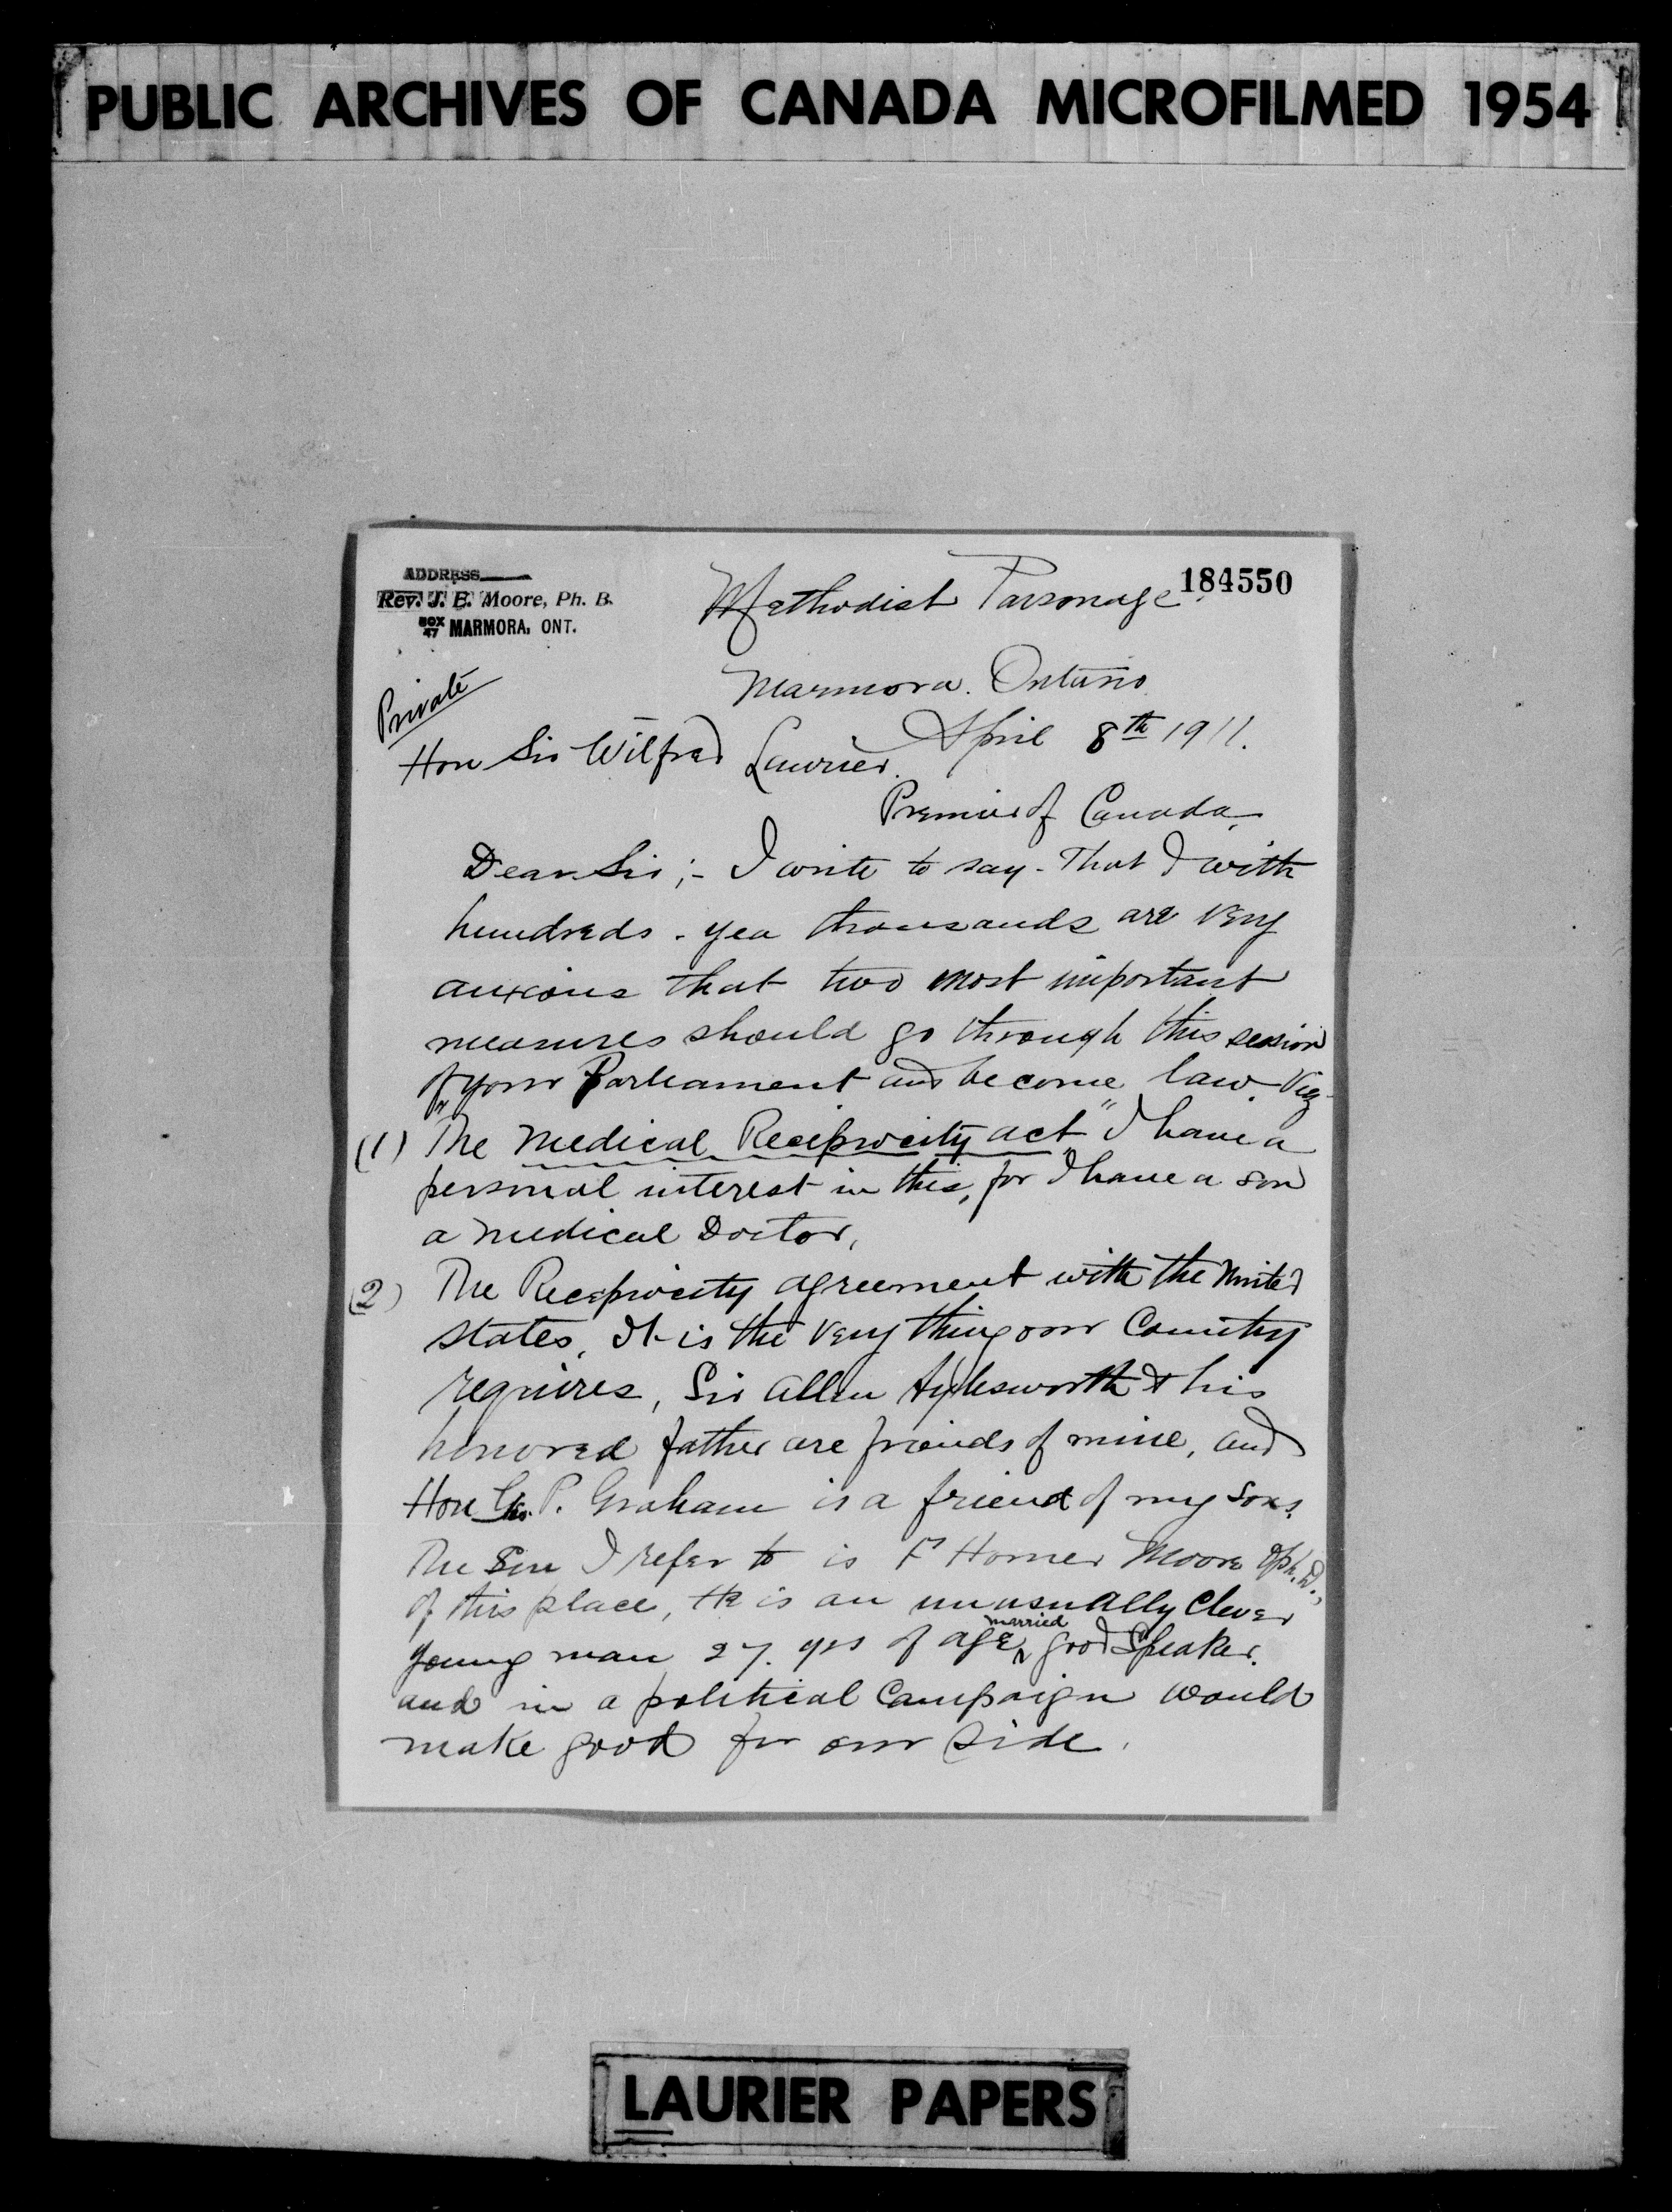 PUBLIC ARCHIVES OF CANADA MICROFILMED 1954
184550
ADDRESS
Rev. J. E. Moore, Ph. B.
BOX 47 MARMORA, ONT.
Methodist Parsonage
Marmora. Ontario
Private
April 8th 1911.
Hon Sir Wilfred Laurier.
Premier of Canada,
Dear Sir;- I write to say - That I with
hundreds - yea thousands are very
anxious that two most important
measures should go through this session
of your Parliament and become law. Viz
(1) The Medical Reciprocity act" I have a
personal interest in this, for I have a son
a medical Doctor,
(2) The Reciprocity agreement with the United
states, It is the very thing our Country
requires, Sir Allen Aylesworth & his
honored father are friends of mine, and
Hon Geo. P. Graham is a friend of my sons.
The Son I refer to is F Homer Moore
of this place, He is an unusually clever
young man 27. yrs of age, married good Speaker.
and in a political Campaign would
make good for our side.
LAURIER PAPERS